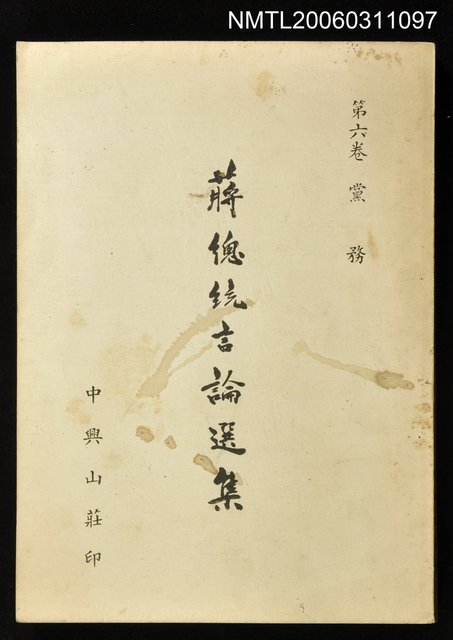 NMTL20060311097
第六卷 黨務
蔣總統言論選集
中興山莊印